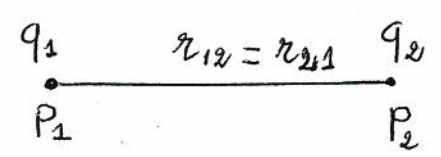 q₁ r₁₂ = r₂₁ q₂
P₁ P₂